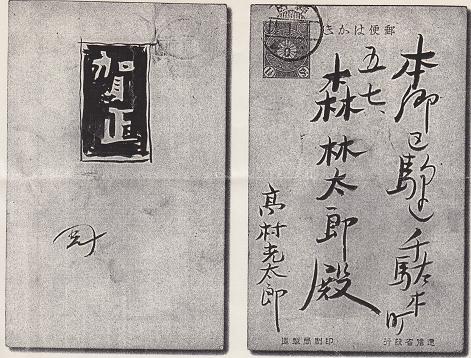 賀正
郵便はかき
本郷区駒込千駄木町
五七、
森林太郎殿
高村光太郎
遞信省發行
印刷局製造